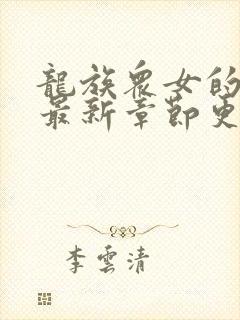 龍族眾女的
最新章節更
李雲清